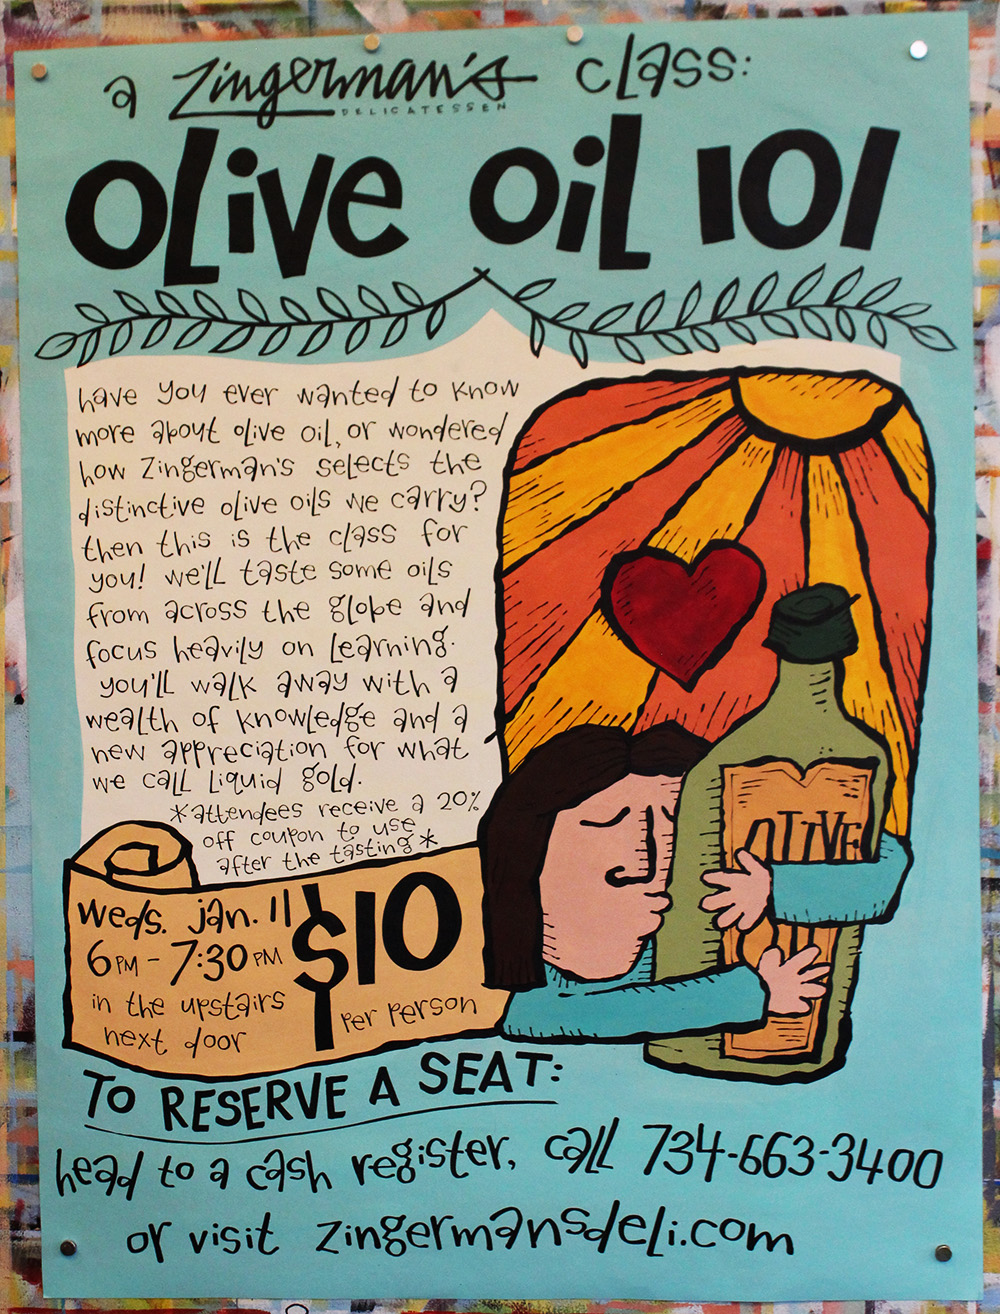 a Zingerman's class:
DELICATESSEN
OLive OiL 101
have you ever wanted to know
more about olive oil, or wondered
how Zingerman's selects the
distinctive olive oils we carry?
then this is the class for
you! we'll taste some oils
from across the globe and
focus heavily on learning.
you'll walk away with a
wealth of knowledge and a
new appreciation for what
we call liquid gold.
*attendees receive a 20%
off coupon to use
after the tasting*
OLIVE
OIL
weds. jan. 11
6PM - 7:30 PM
in the upstairs
next door
$10
per person
TO RESERVE A SEAT:
head to a cash register, call 734-663-3400
or visit zingermansdeli.com